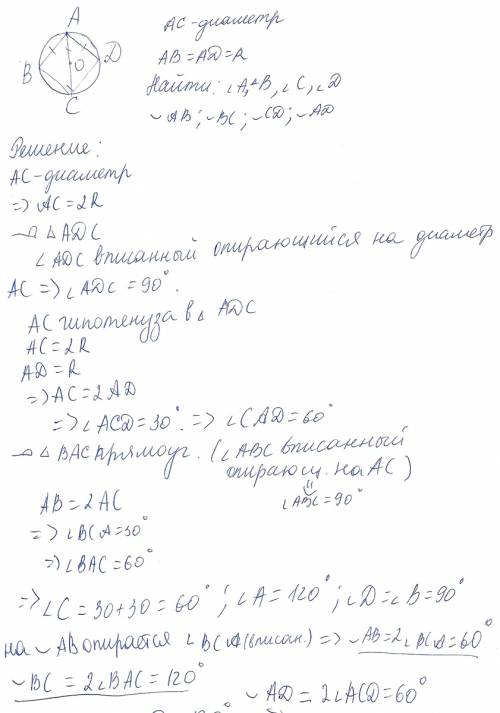 A
B
D
O
C
AC - диаметр
AB = AD = R
Найти: ∠A, ∠B, ∠C, ∠D
◡AB; ◡BC; ◡CD; ◡AD
Решение:
AC - диаметр
=> AC = 2R
△ADC
∠ADC вписанный опирающийся на диаметр
AC => ∠ADC = 90°.
AC гипотенуза в △ADC
AC = 2R
AD = R
=> AC = 2AD
=> ∠ACD = 30°. => ∠CAD = 60°
△BAC прямоуг. (∠ABC вписанный
опирающ. на AC)
∠ABC = 90°
AB = 2AC
=> ∠BCA = 30°
=> ∠BAC = 60°
=> ∠C = 30 + 30 = 60°; ∠A = 120°; ∠D = ∠B = 90°
на ◡AB опирается ∠BCA (вписан.) => ◡AB = 2∠BCA = 60°
◡BC = 2∠BAC = 120°
◡AD = 2∠ACD = 60°